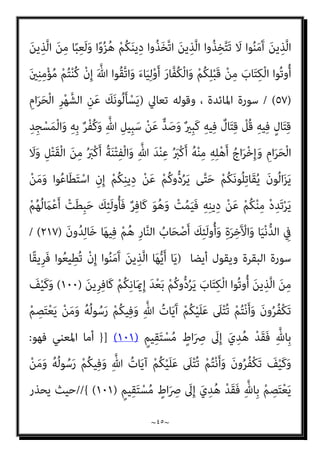 الَّذِينَ آمَنُوا لَا تَتَّخِذُوا الَّذِينَ اتَّخَذُوا دِينَكُمْ هُزُوًا وَلَعِبًا مِنَ الَّذِينَ
أُوتُوا الْكِتَابَ مِنْ قَبْلِكُمْ وَالْكُفَّارَ أَوْلِيَاءَ وَاتَّقُوا اللَّهَ إِنْ كُنْتُمْ مُؤْمِنِينَ
(٥٧) / سورة المائدة ، وقوله تعالي (يَسْأَلُونَكَ عَنِ الشَّهْرِ الْحَرَامِ
قِتَالٍ فِيهِ قُلْ قِتَالٌ فِيهِ كَبِيرٌ وَصَدٌّ عَنْ سَبِيلِ اللَّهِ وَكُفْرٌ بِهِ وَالْمَسْجِدِ
الْحَرَامِ وَإِخْرَاجُ أَهْلِهِ مِنْهُ أَكْبَرُ عِنْدَ اللَّهِ وَالْفِتْنَةُ أَكْبَرُ مِنَ الْقَتْلِ وَلَا
يَزَالُونَ يُقَاتِلُونَكُمْ حَتَّى يَرُدُّوكُمْ عَنْ دِينِكُمْ إِنِ اسْتَطَاعُوا وَمَنْ
يَرْتَدِدْ مِنْكُمْ عَنْ دِينِهِ فَيَمُتْ وَهُوَ كَافِرٌ فَأُولَئِكَ حَبِطَتْ أَعْمَالُهُمْ
فِي الدُّنْيَا وَالْآخِرَةِ وَأُولَئِكَ أَصْحَابُ النَّارِ هُمْ فِيهَا خَالِدُونَ (٢١٧) /
سورة البقرة ويقول أيضا (يَا أَيُّهَا الَّذِينَ آمَنُوا إِنْ تُطِيعُوا فَرِيقًا
مِنَ الَّذِينَ أُوتُوا الْكِتَابَ يَرُدُّوكُمْ بَعْدَ إِيمَانِكُمْ كَافِرِينَ (١٠٠) وَكَيْفَ
تَكْفُرُونَ وَأَنْتُمْ تُتْلَى عَلَيْكُمْ آيَاتُ اللَّهِ وَفِيكُمْ رَسُولُهُ وَمَنْ يَعْتَصِمْ
بِاللَّهِ فَقَدْ هُدِيَ إِلَى صِرَاطٍ مُسْتَقِيمٍ (١٠١) }[ أما المعني فهو:
وَكَيْفَ تَكْفُرُونَ وَأَنْتُمْ تُتْلَى عَلَيْكُمْ آيَاتُ اللَّهِ وَفِيكُمْ رَسُولُهُ وَمَنْ
يَعْتَصِمْ بِاللَّهِ فَقَدْ هُدِيَ إِلَى صِرَاطٍ مُسْتَقِيمٍ (١٠١) ]//حيث يحذر
~٤٥~